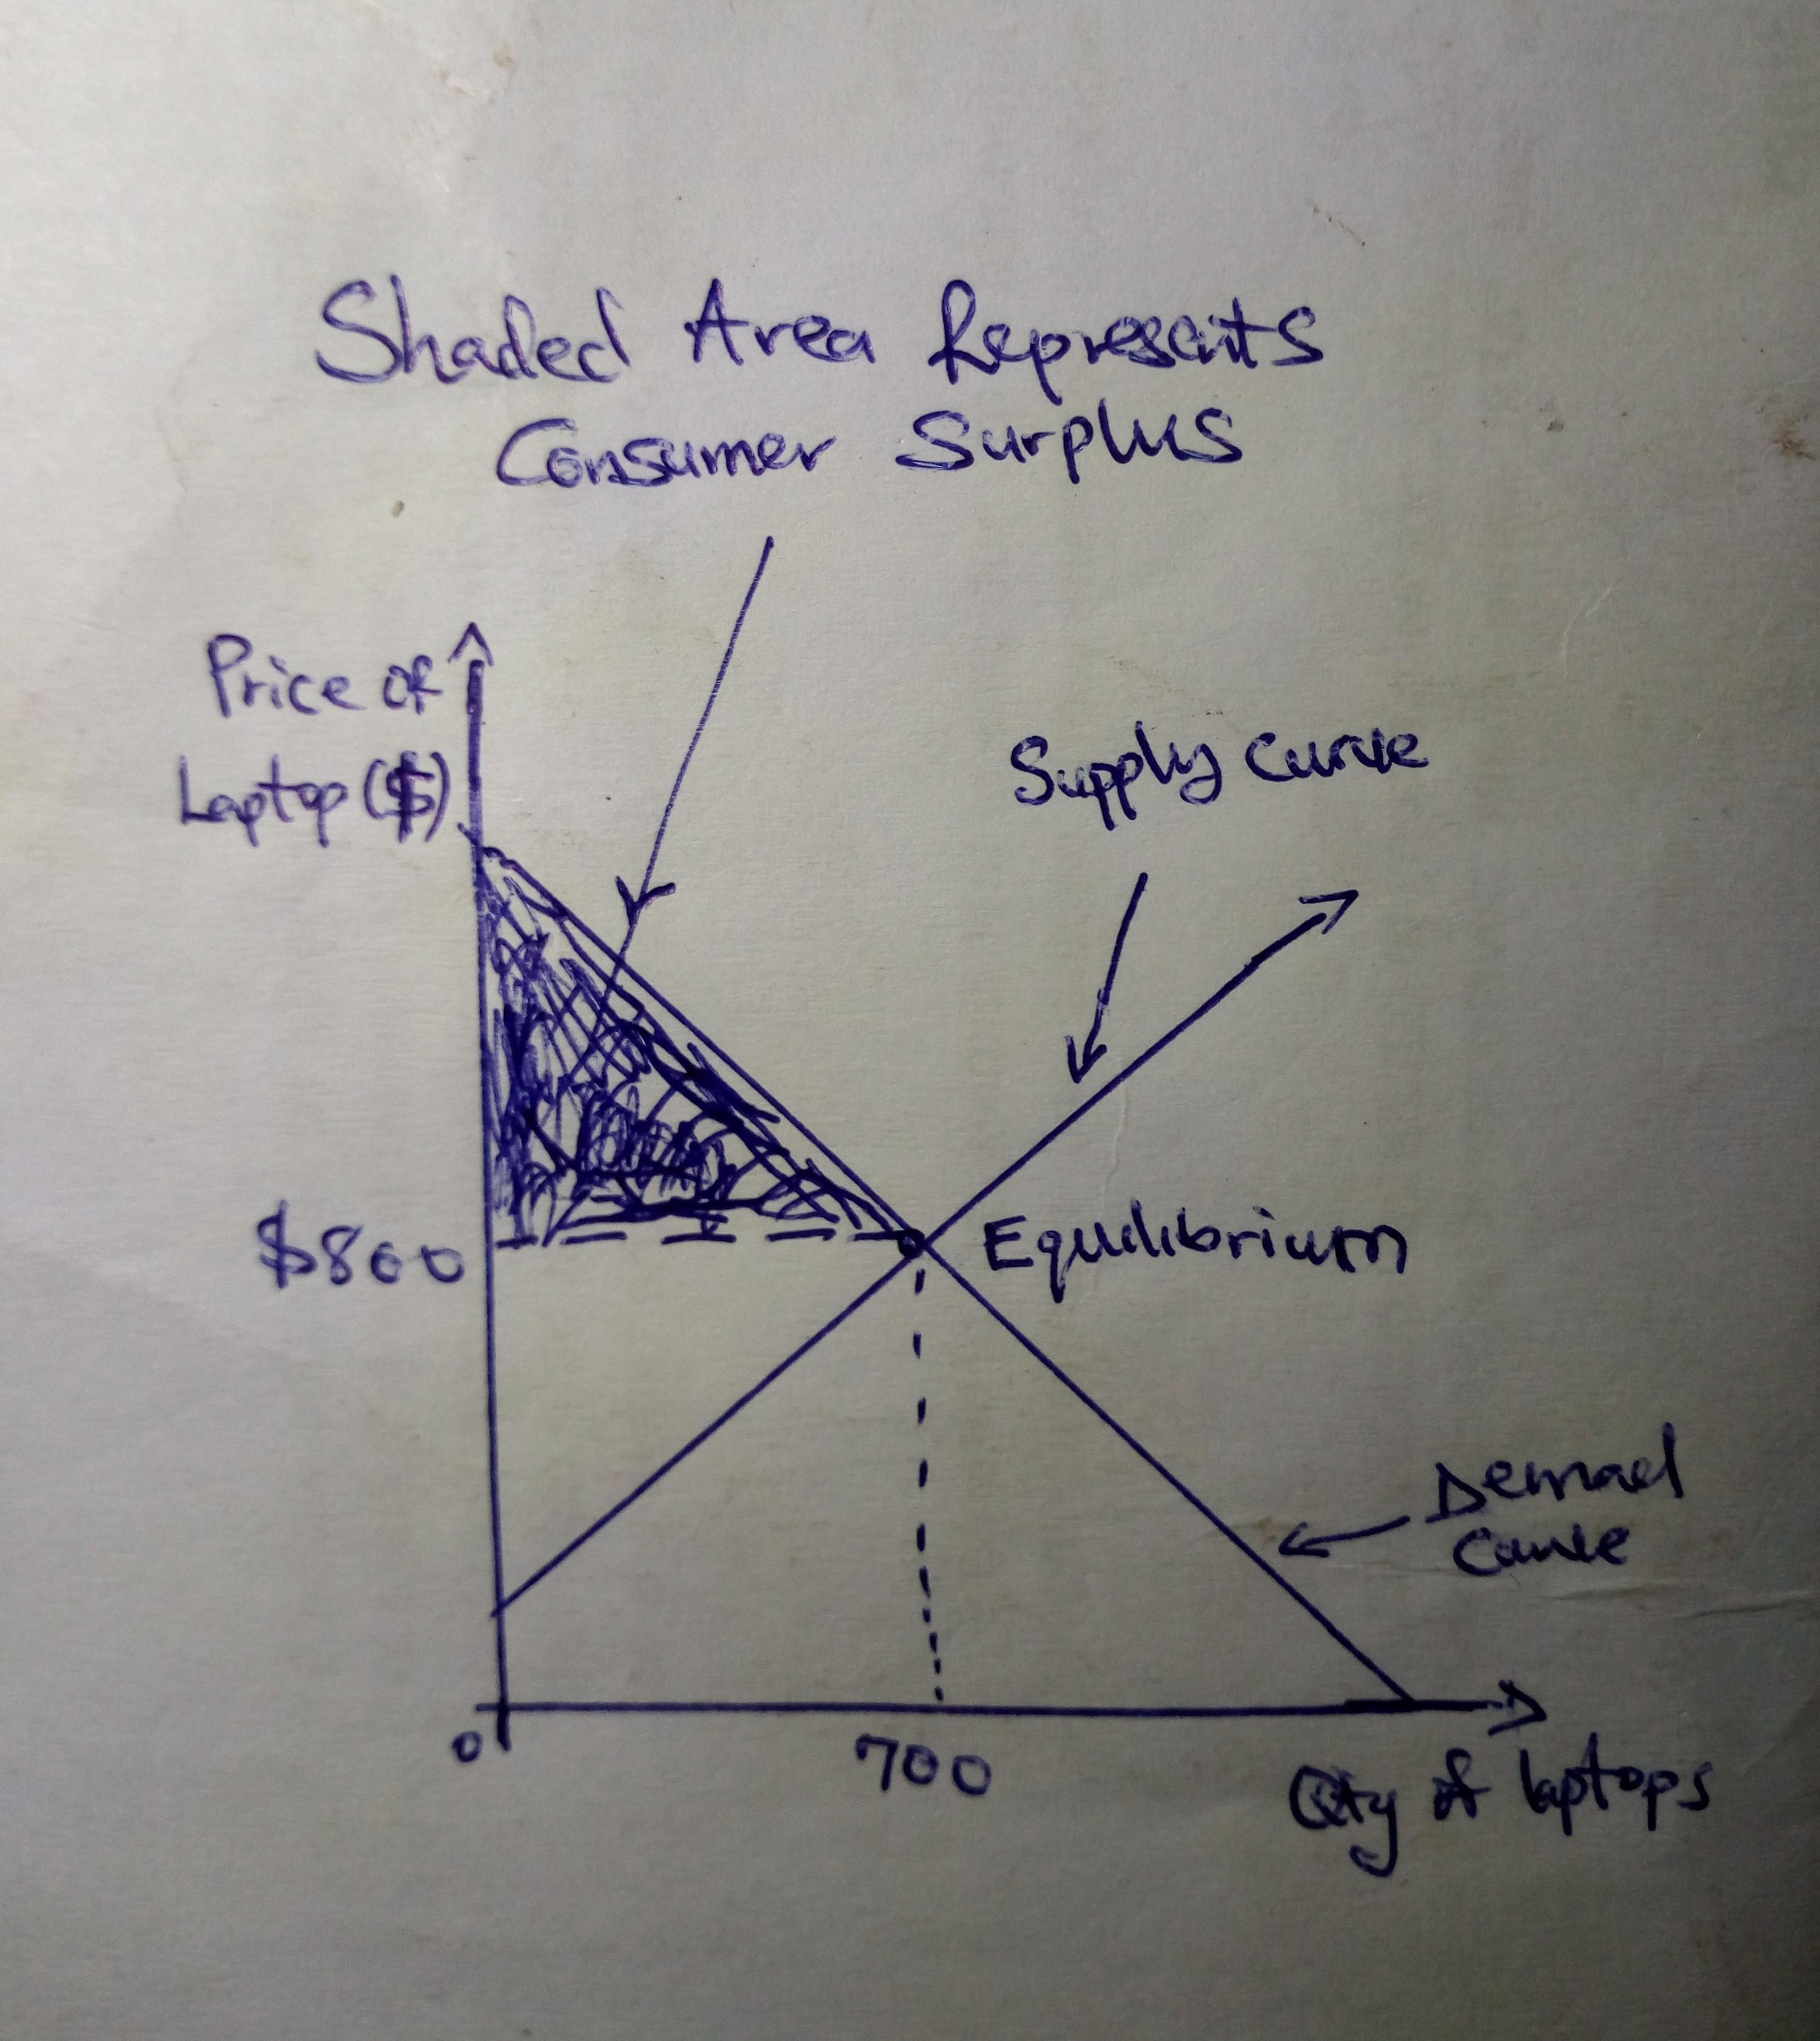 Shaded Area Represents
Consumer Surplus
Price of
Laptop ($)
Supply Curve
$800
Equilibrium
Demand
Curve
0
700
Qty of laptops